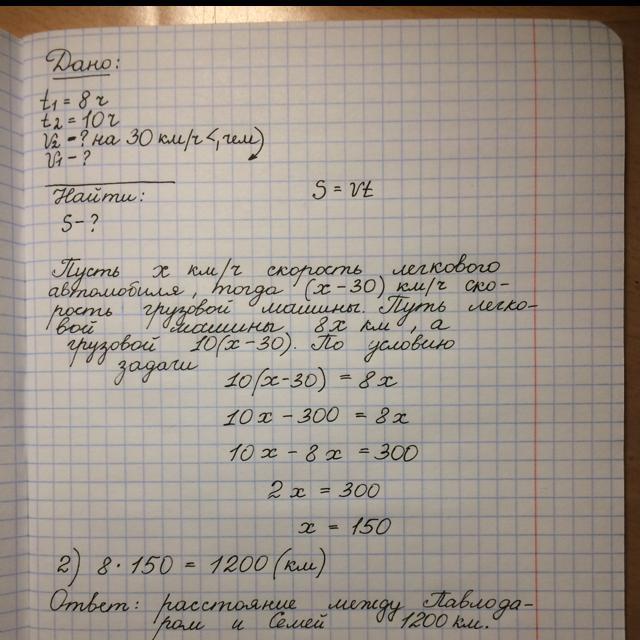 Дано:
t1 = 8 ч
t2 = 10 ч
v2 - ? на 30 км/ч <, чем
v1 - ?
Найти:
S = vt
S - ?
Пусть x км/ч скорость легкового
автомобиля, тогда (x-30) км/ч ско-
рость грузовой машины. Путь легко-
вой машины 8x км, а
грузовой 10(x-30). По условию
задачи
10(x-30) = 8x
10x - 300 = 8x
10x - 8x = 300
2x = 300
x = 150
2) 8 · 150 = 1200 (км)
Ответ: расстояние между Павлода-
ром и Семей 1200 км.